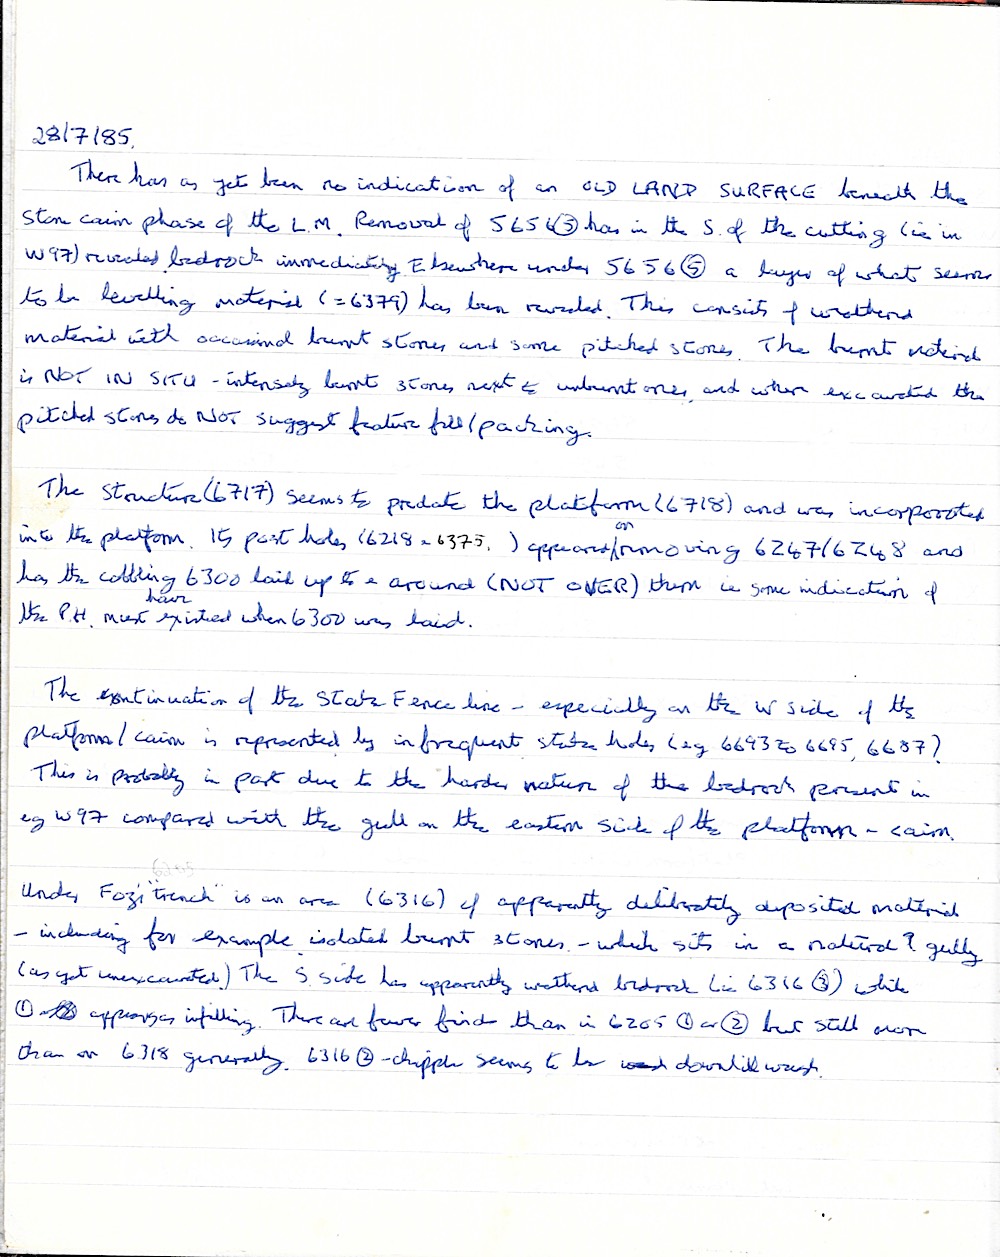 28/7/85.
There has as yet been no indication of an OLD LAND SURFACE beneath the
stone cairn phase of the L.M. Removal of 5656 has in the S. of the cutting (ie in
W97) revealed bedrock immediately Elsewhere under 5656 ⑤ a layer of what seems
to be levelling material (= 6379) has been revealed. This consists of weathered
material with occasional burnt stones and some pitched stones. The burnt material
is NOT IN SITU - intensely burnt stones next to unburnt ones, and when excavated the
pitched stones do NOT suggest feature fill/packing.
The structure (6717) seems to predate the platform (6718) and was incorporated
into the platform. Its post holes (6218 6375, ) appeared on removing 6247/6248 and
has the cobbling 6300 laid up to & around (NOT OVER) them ie some indication of
the P.H. must have existed when 6300 was laid.
The continuation of the Stake Fence line - especially on the W side of the
platform/cairn is represented by infrequent stake holes (eg 6693 to 6695, 6687)
This is probably in part due to the harder nature of the bedrock present in
eg W97 compared with the gull on the eastern side of the platform - cairn.
6205
Under Fozi "trench" is an area (6316) of apparently deliberately deposited material
- including for example isolated burnt stones - which sits in a natural? gully
(as yet unexcavated.) The S side has apparently weathered bedrock (ie 6316 ③) while
① appears as infilling. There are fewer finds than in 6205 ① or ② but still more
than on 6318 generally. 6316 ② - seems to be downhill wash.